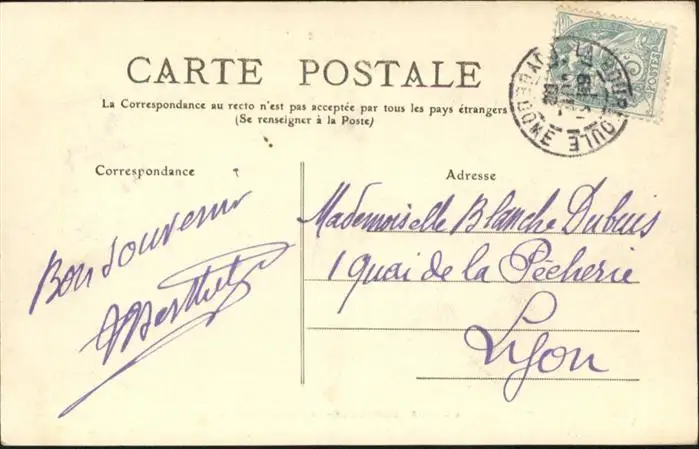 CARTE POSTALE
La Correspondance au recto n'est pas acceptée par tous les pays étrangers
(Se renseigner à la Poste)
Correspondance
Adresse
Bon souvenir
Mademoiselle Blanche Dubuis
1 Quai de la Pêcherie
Lyon
LA BOURBOULE
PUY-DE-DOME
POSTES